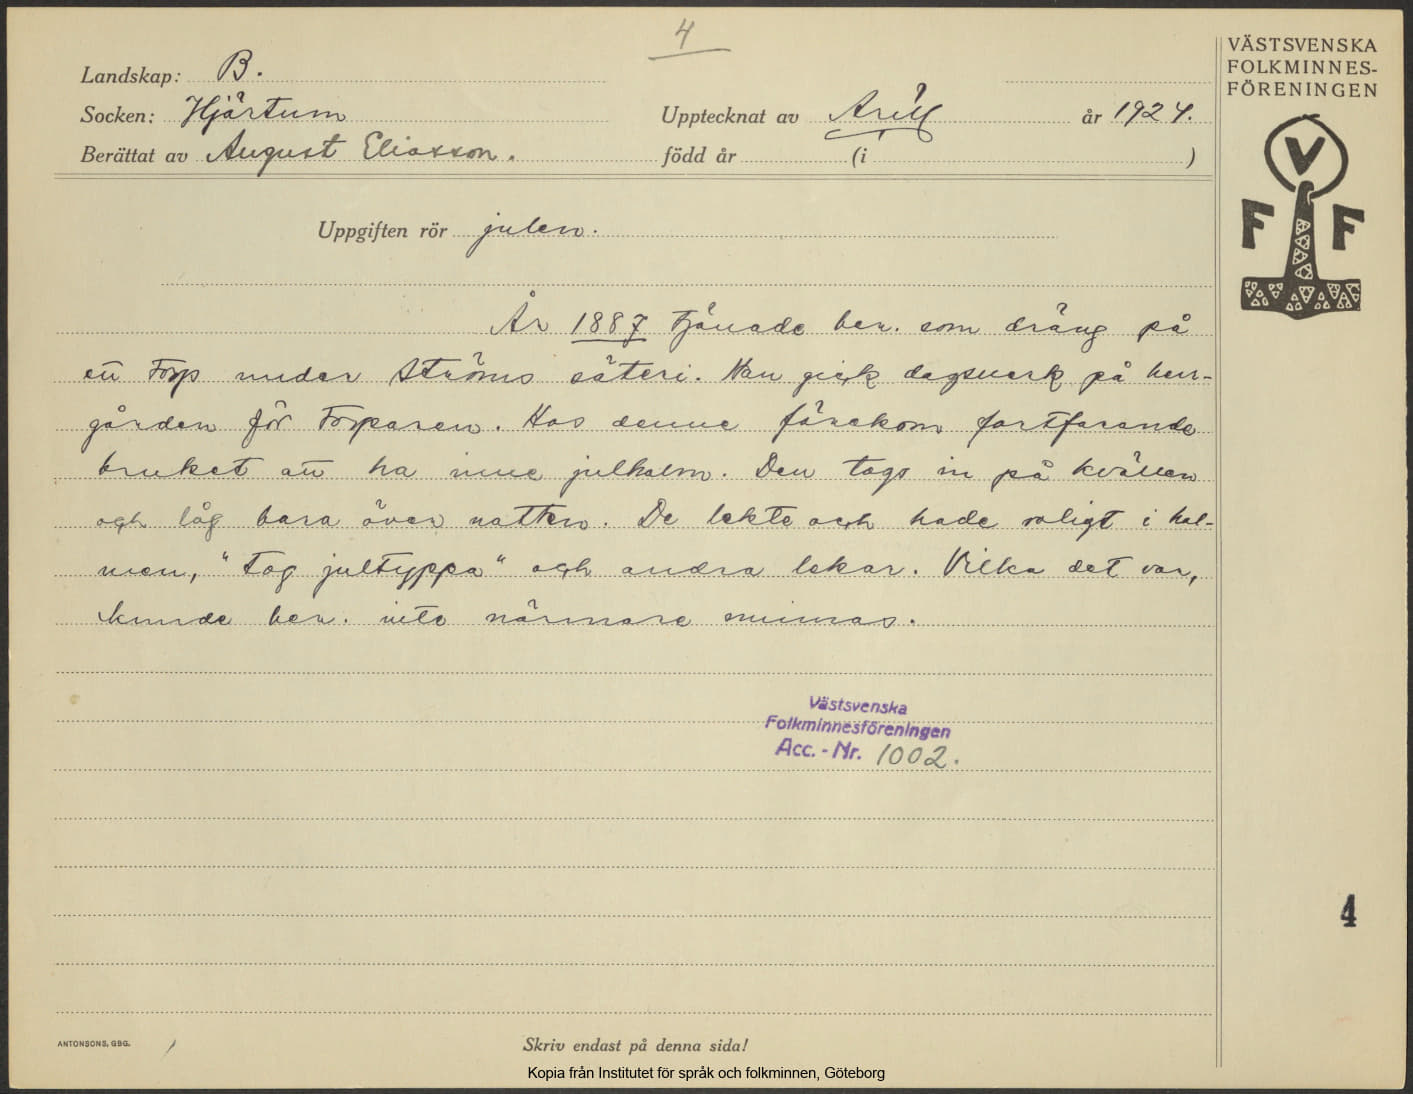 4
Landskap: B.
Socken: Hjärtum
Upptecknat av Arill år 1924.
Berättat av August Eliasson.
född år (i )
VÄSTSVENSKA
FOLKMINNES-
FÖRENINGEN
V
F F
Uppgiften rör julen.
År 1887 tjänade ber. som dräng på
ett torp under Ströms säteri. Han gick dagsverk på herr-
gården för torparen. Hos denne förekom fortfarande
bruket att ha inne julhalm. Den togs in på kvällen
och låg bara över natten. De lekte och hade roligt i hal-
men, "tog jultyppa" och andra lekar. Vilka det var,
kunde ber. inte närmare minnas.
Västsvenska
Folkminnesföreningen
Acc.-Nr. 1002.
4
ANTONSONS, GBG.
Skriv endast på denna sida!
Kopia från Institutet för språk och folkminnen, Göteborg